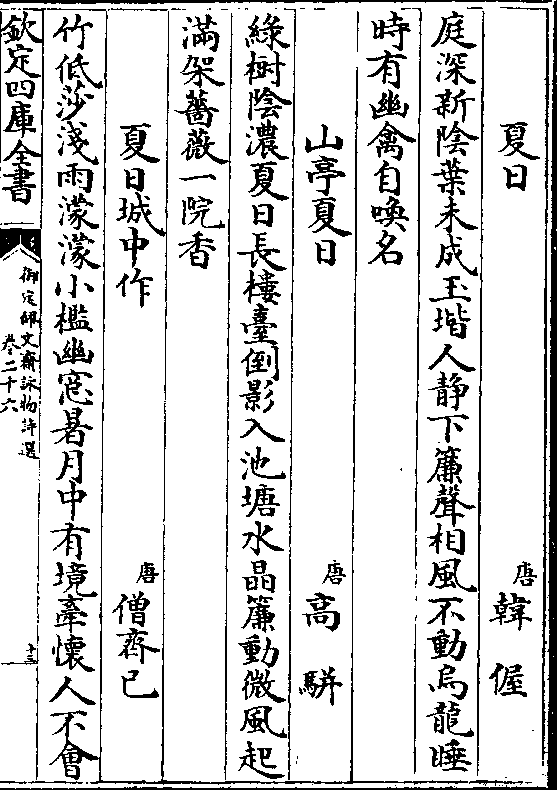 夏日
唐
韓偓
庭深新陰葉未成玉堦人靜下簾聲相風不動烏龍睡
時有幽禽自喚名
山亭夏日
唐
高駢
綠樹陰濃夏日長樓臺倒影入池塘水晶簾動微風起
滿架薔薇一院香
夏日城中作
唐
僧齊已
竹低莎淺雨濛濛小檻幽窓暑月中有境牽懷人不會
欽定四庫全書
御定佩文齋詠物詩選
卷二十六
十三